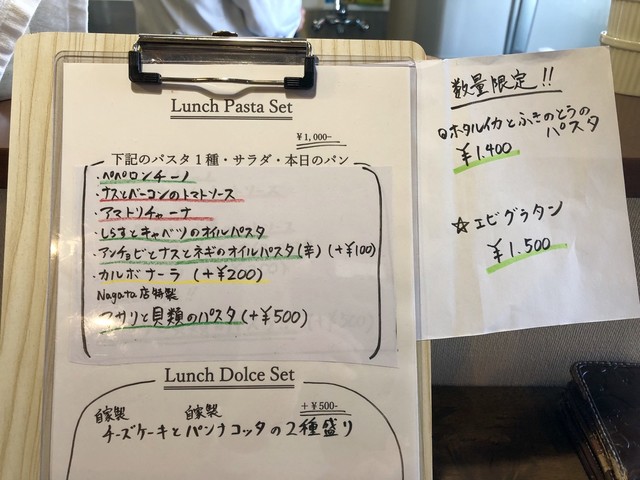 Lunch Pasta Set
¥1,000-
下記のパスタ1種・サラダ・本日のパン
・ペペロンチーノ
・ナスとベーコンのトマトソース
・アマトリチャーナ
・しらすとキャベツのオイルパスタ
・アンチョビとナスとネギのオイルパスタ(辛)(+¥100)
・カルボナーラ (+¥200)
Nagata店特製
・アサリと貝類のパスタ(+¥500)
Lunch Dolce Set
+¥500-
自家製 自家製
チーズケーキとパンナコッタの2種盛り
数量限定!!
◎ホタルイカとふきのとうの
パスタ
¥1.400
☆エビグラタン
¥1.500